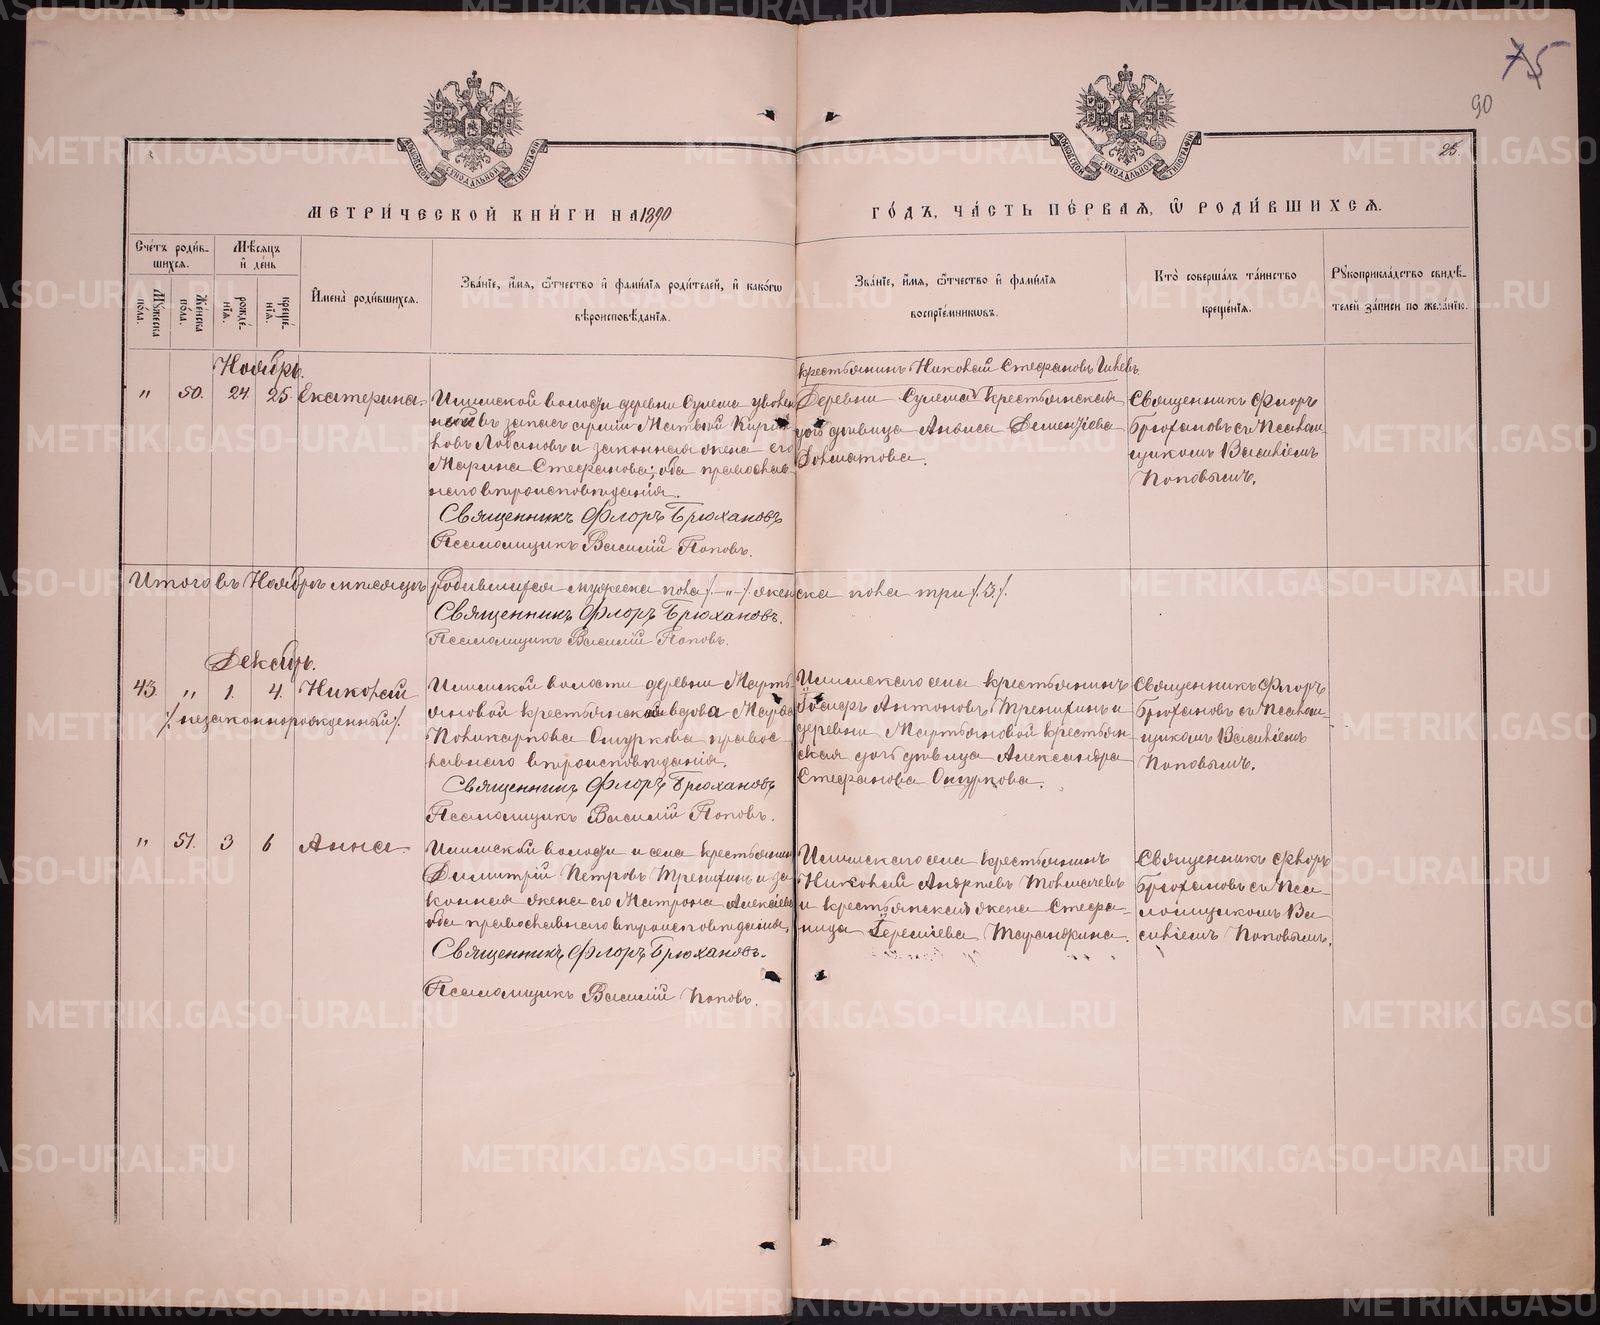 75
90
25.
МОСКОВСКОЙ СѴНОДАЛЬНОЙ ТИПОГРАФІИ
МОСКОВСКОЙ СѴНОДАЛЬНОЙ ТИПОГРАФІИ
МЕТРИ́ЧЕСКОЙ КНИ́ГИ НА 1890
ГО́ДЪ, ЧА́СТЬ ПЕ́РВАЯ, Ѡ҆ РОДИ́ВШИХСѦ.
Сче́тъ роди́в-
шихся.
Мѣ́сяцъ
и҆ де́нь
Му́жеска по́ла.
Же́нска по́ла.
рожде́-
нїѧ.
креще́-
нїѧ.
И҆мена̀ роди́вшихся.
Зва́нїе, и҆́мѧ, ѻ҆́тчество и҆ фами́лїѧ роди́телей, и҆ како́гѡ
вѣроисповѣ́данїѧ.
Зва́нїе, и҆́мѧ, ѻ҆́тчество и҆ фами́лїѧ
воспрїе́мникѡвъ.
Кто̀ соверша́лъ та́инство
креще́нїѧ.
Рꙋкоприкла́дство свидѣ́-
телей за́писи по жела́нїю.
Ноябрь.
" 50. 24. 25. Екатерина.
Илимской волости деревни Сулема уволен
ной въ запасъ арміи Матвѣй Кирил
ловъ Лобановъ и законная жена его
Марина Стефанова; оба православ-
наго вѣроисповѣданія.
Священникъ Флоръ Брюхановъ
Псаломщикъ Василій Поповъ.
крестьянинъ Николай Стефановъ
Деревни Сулема крестьянская
дочь дѣвица Анѳиса Дементіева
Долматова.
Священникъ Флоръ
Брюхановъ съ Псалом-
щикомъ Василіемъ
Поповымъ.
Итого въ Ноябрѣ мѣсяцѣ родившихся мужеска пола /-"-/ женска пола три /3/.
Священникъ Флоръ Брюхановъ.
Псаломщикъ Василій Поповъ.
Декабрь.
43. " 1. 4. Николай
/незаконнорожденный/.
Илимской волости деревни Марть
яновой крестьянская вдова Марѳа
Поликарпова Ошуркова правос
лавнаго вѣроисповѣданія.
Священникъ Флоръ Брюхановъ
Псаломщикъ Василій Поповъ.
Илимскаго села крестьянинъ
Іосифъ Антоновъ Тренихинъ и
деревни Мартьяновой крестьян
ская дочь дѣвица Александра
Стефанова Ошуркова.
Священникъ Флоръ
Брюхановъ съ Псалом-
щикомъ Василіемъ
Поповымъ.
" 51. 3 6 Анна
Илимской волости и села крестьянинъ
Димитрій Петровъ Тренихинъ и за
конная жена его Матрона Алексіева
оба православнаго вѣроисповѣданія.
Священникъ Флоръ Брюхановъ.
Псаломщикъ Василій Поповъ.
Илимскаго села крестьянинъ
Николай Андреевъ Толмачевъ
и крестьянская жена Стефа-
нида Іереміева Таранжина.
Священникъ Флоръ
Брюхановъ съ Пса-
ломщикомъ Ва-
силіемъ Поповымъ.
METRIKI.GASO-URAL.RU